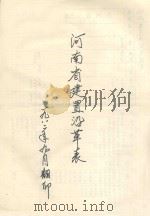 河南省建置沿革表
一九八二年九月翻印